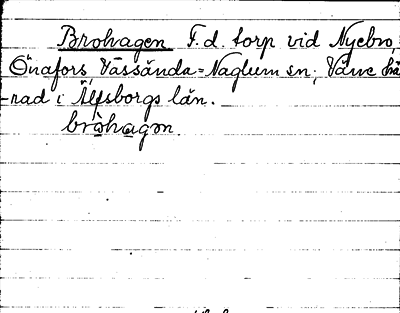 Brohagen F.d. torp vid Nyebro,
Önafors, Vässända-Naglum sn; Väne hä
-rad i Älfsborgs län.
bròhagən.